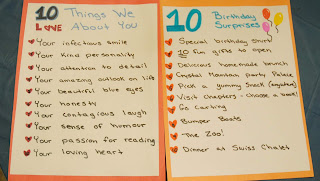 10 Things We
Love About You
Your infectious smile
Your kind personality
Your attention to detail
Your amazing outlook on life
Your beautiful blue eyes
Your honesty
Your contagious laugh
Your sense of humour
Your passion for reading
Your loving heart
10 Birthday
Surprises
Special birthday shirt
10 fun gifts to open
Delicious homemade brunch
Crystal Mantan party Palace
Pick a yummy snack (anywhere)
Visit Chapters - choose a book!
Go Carting
Bumper Boats
The Zoo!
Dinner at Swiss Chalet